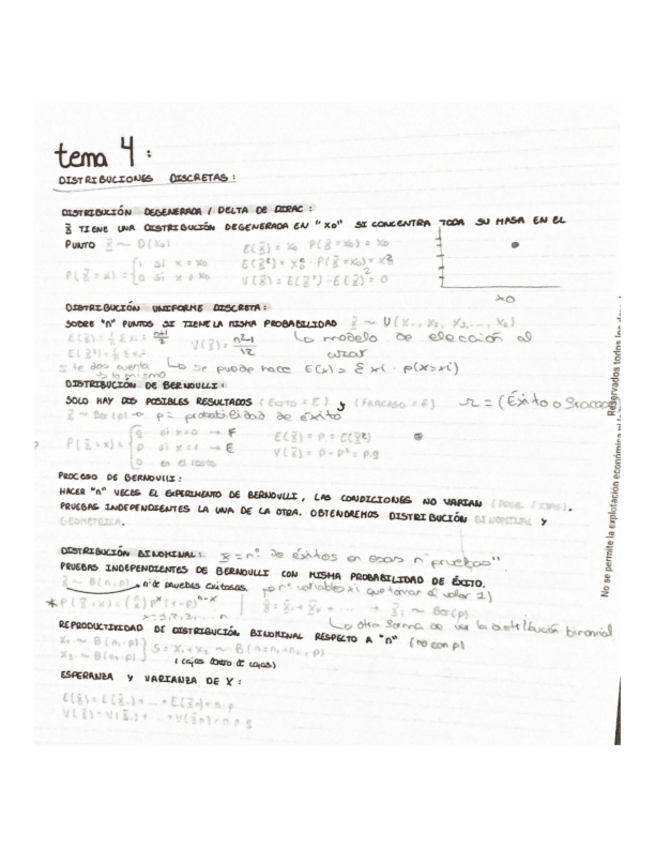 tema 4:
DISTRIBUCIONES DISCRETAS:
DISTRIBUCIÓN DEGENERADA / DELTA DE DIRAC:
X TIENE UNA DISTRIBUCIÓN DEGENERADA EN "X0" SI CONCENTRA TODA SU MASA EN EL
PUNTO X ~ D(X0) E(X) = X0 · P(X=X0) = X0
P(X=x) = { 1 si x = x0 E(X²) = X0² · P(X=X0) = X0²
0 si x ≠ x0 V(X) = E(X²) - E(X)² = 0
X0
DISTRIBUCIÓN UNIFORME DISCRETA:
SOBRE "n" PUNTOS SI TIENE LA MISMA PROBABILIDAD X ~ U(X1, X2, X3, ..., Xn)
E(X) = 1/n Σxi = n+1/2 V(X) = n²-1/12 ↳ modelo de elección al
E(X²) = 1/n Σxi² azar
si te das cuenta ↳ se puede hace E(x) = Σ xi · p(x=xi)
es lo mismo
DISTRIBUCIÓN DE BERNOULLI:
SOLO HAY DOS POSIBLES RESULTADOS (ÉXITO = E) y (FRACASO = F) Ω = (Éxito o Fracaso
X ~ Ber(p) → p = probabilidad de éxito
P(X=x) = { q si x=0 → F E(X) = p = E(X²)
p si x=1 → E V(X) = p - p² = p·q
0 en el resto
PROCESO DE BERNOULLI:
HACER "n" VECES EL EXPERIMENTO DE BERNOULLI, LAS CONDICIONES NO VARIAN
PRUEBAS INDEPENDIENTES LA UNA DE LA OTRA. OBTENDREMOS DISTRIBUCIÓN BINOMINAL Y
GEOMÉTRICA.
DISTRIBUCIÓN BINOMINAL: X = nº de éxitos en esas n "pruebas"
PRUEBAS INDEPENDIENTES DE BERNOULLI CON MISMA PROBABILIDAD DE ÉXITO.
X ~ B(n, p) → nº de pruebas exitosas (nº variables xi que toman el valor 1)
* P(X=x) = (n x) p^x (1-p)^n-x X = X1 + X2 + ... + Xi ~ Ber(p)
x = 1, 2, 3, ... n ↳ otra forma de ver la distribución binomial
REPRODUCTIVIDAD DE DISTRIBUCIÓN BINOMINAL RESPECTO A "n" (no con p)
X1 ~ B(n1, p)
X2 ~ B(n2, p) } S = X1 + X2 ~ B(n = n1 + n2, p)
(cajas dentro de cajas)
ESPERANZA Y VARIANZA DE X:
E(X) = E(X1) + ... + E(Xn) = n·p
V(X) = V(X1) + ... + V(Xn) = n·p·q
No se permite la explotación económica ni la
Reservados todos los